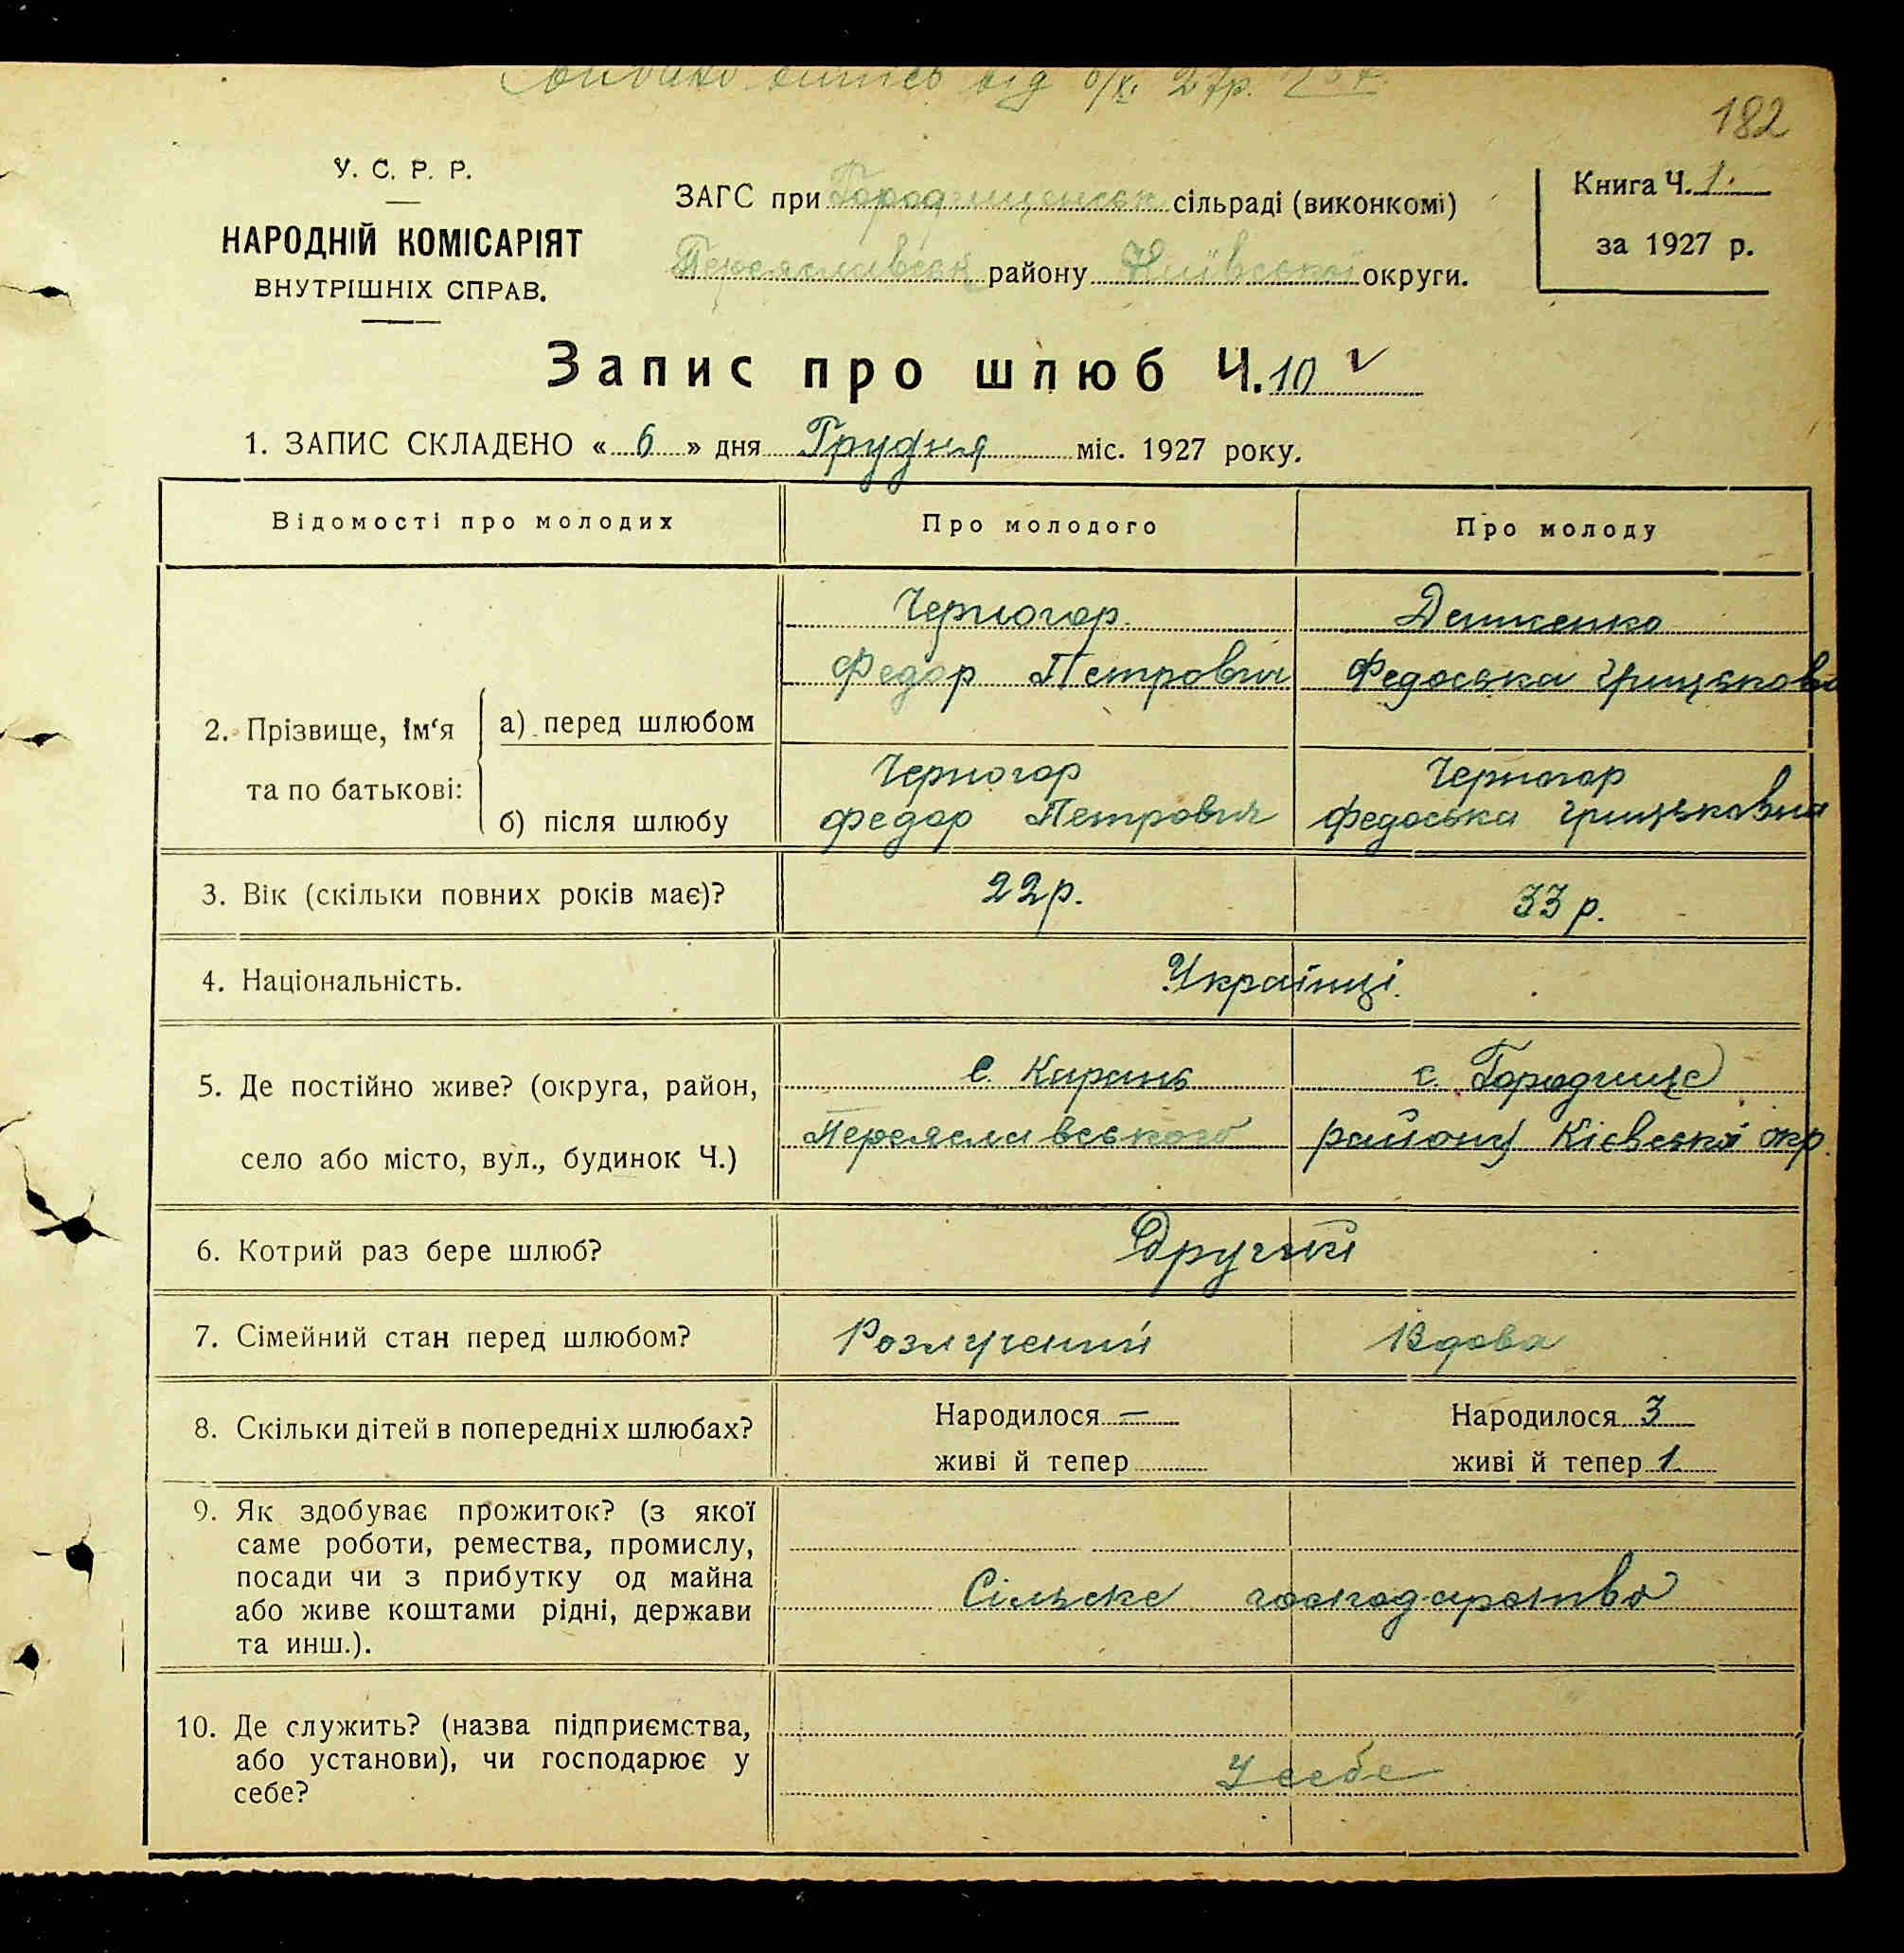 від 27р.
182
У. С. Р. Р.
НАРОДНІЙ КОМІСАРІЯТ
ВНУТРІШНІХ СПРАВ.
ЗАГС при Городищенськ сільраді (виконкомі)
Переяславськ району Київської округи.
Книга Ч. 1.
за 1927 р.
Запис про шлюб Ч. 10
1. ЗАПИС СКЛАДЕНО « 6 » дня Грудня міс. 1927 року.
Відомості про молодих
Про молодого
Про молоду
2. Прізвище, ім‘я
та по батькові:
а) перед шлюбом
Черногор
Федор Петрович
Федоська Грицькова
б) після шлюбу
Черногор
Федор Петрович
Черногор
Федоська Грицьковна
3. Вік (скільки повних років має)?
22р.
33 р.
4. Національність.
Українці.
5. Де постійно живе? (округа, район,
село або місто, вул., будинок Ч.)
С. Карань
с. Городище
Переяславського району Кієвської окр.
6. Котрий раз бере шлюб?
Другий
7. Сімейний стан перед шлюбом?
Розлучений
Вдова
8. Скільки дітей в попередніх шлюбах?
Народилося —
живі й тепер
Народилося 3
живі й тепер 1
9. Як здобуває прожиток? (з якої
саме роботи, ремества, промислу,
посади чи з прибутку од майна
або живе коштами рідні, держави
та инш.).
Сільске господарство
10. Де служить? (назва підприємства,
або установи), чи господарює у
себе?
У себе